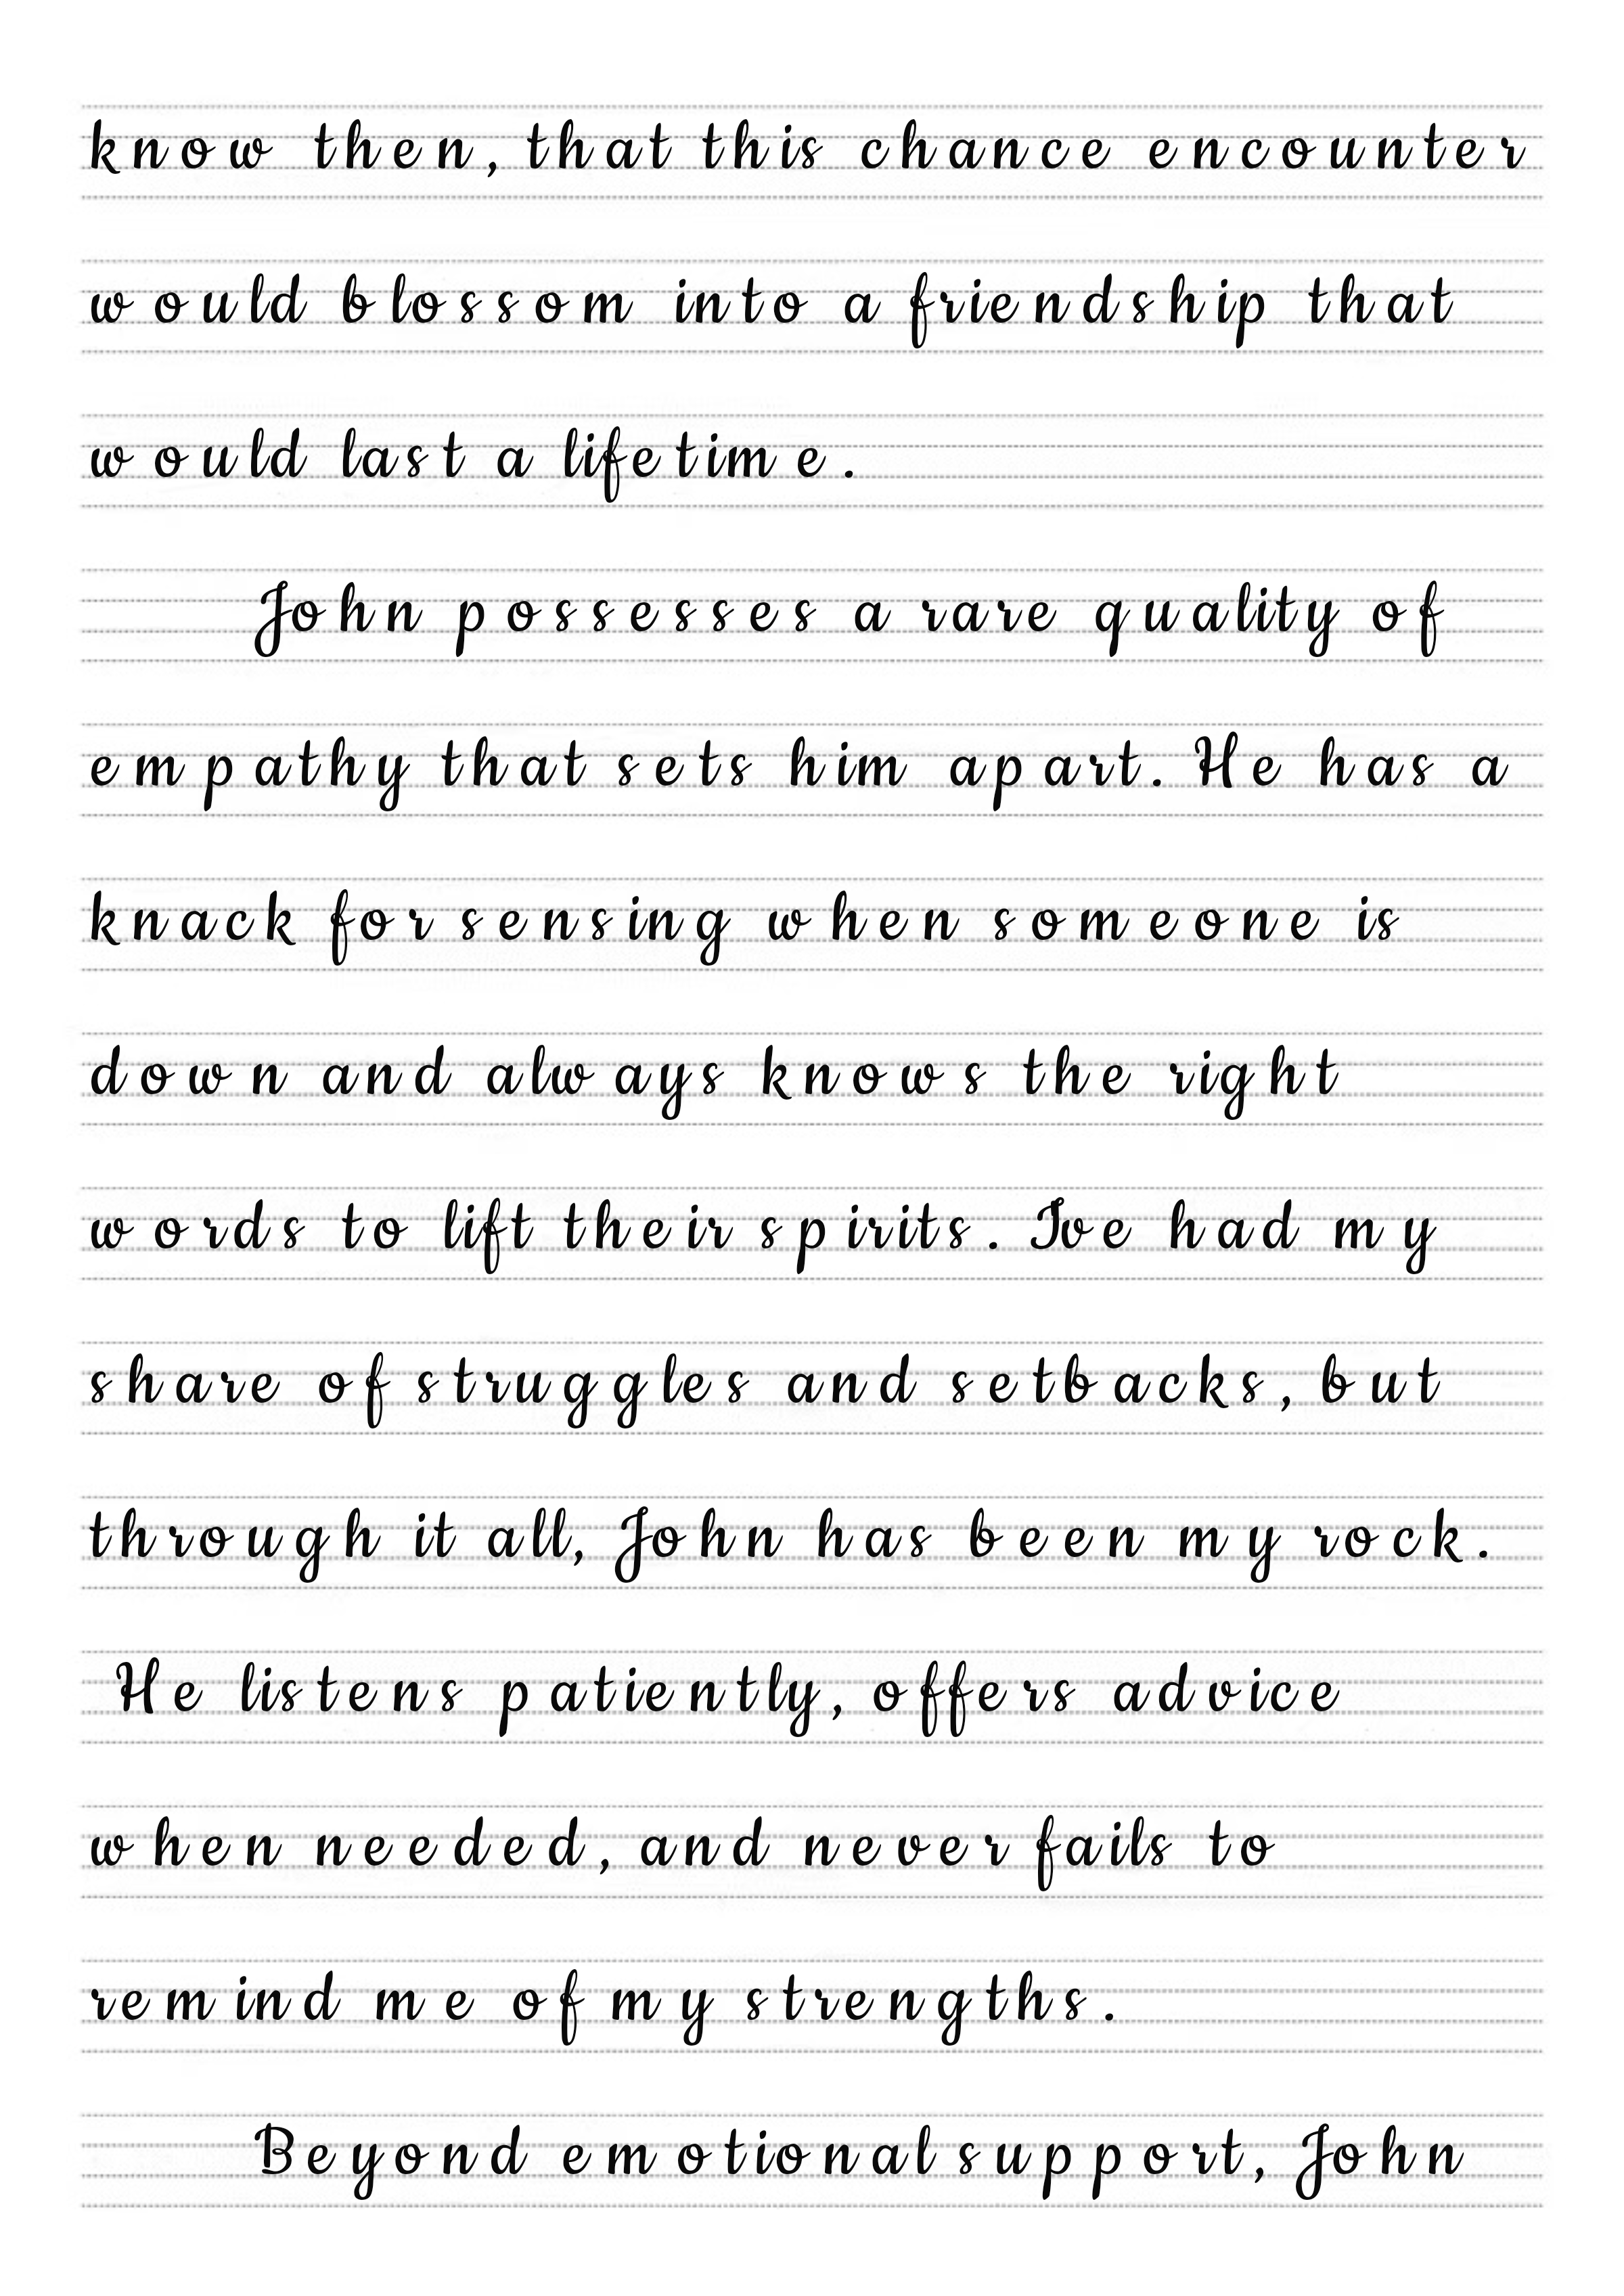 know then, that this chance encounter
would blossom into a friendship that
would last a lifetime.
John possesses a rare quality of
empathy that sets him apart. He has a
knack for sensing when someone is
down and always knows the right
words to lift their spirits. Ive had my
share of struggles and setbacks, but
through it all, John has been my rock.
He listens patiently, offers advice
when needed, and never fails to
remind me of my strengths.
Beyond emotional support, John